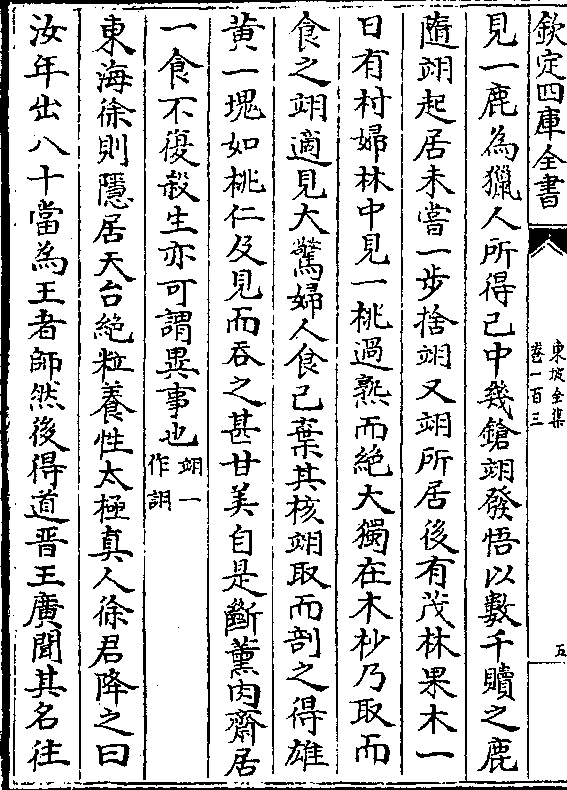 欽定四庫全書
東坡全集
卷一百三
五
見一鹿為獵人所得已中幾鎗翊發悟以數千贖之鹿
隨翊起居未嘗一步捨翊又翊所居後有茂林果木一
日有村婦林中見一桃過熟而絶大獨在木杪乃取而
食之翊適見大驚婦人食已棄其核翊取而剖之得雄
黄一塊如桃仁及見而吞之甚甘美自是斷薰肉齋居
一食不復殺生亦可謂異事也翊一作詡
東海徐則隱居天台絶粒養性太極真人徐君降之曰
汝年出八十當為王者師然後得道晋王廣聞其名往